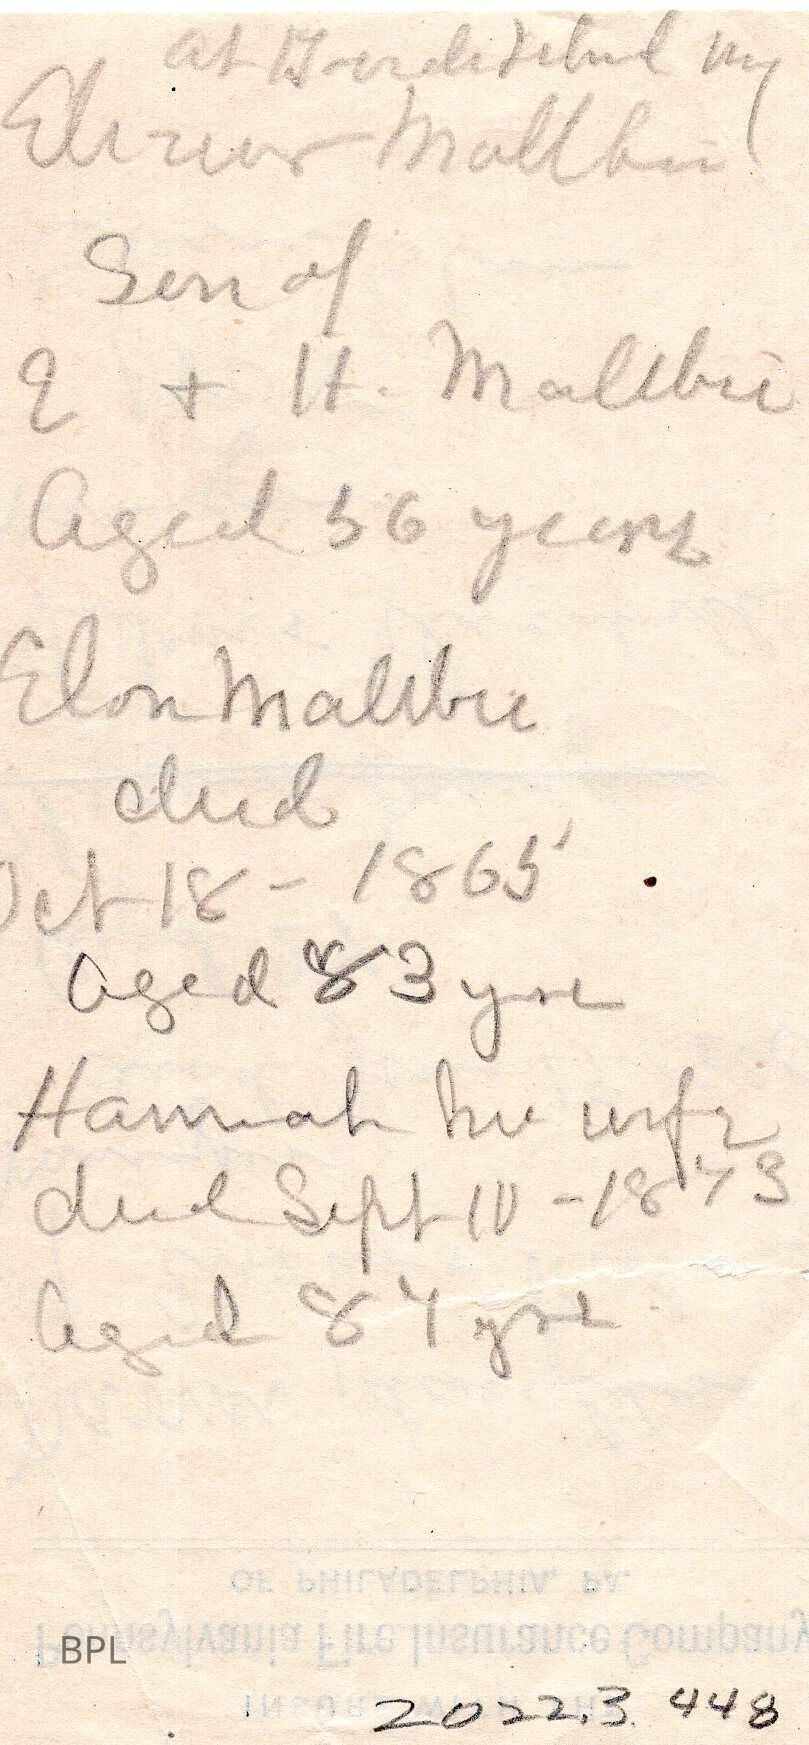 at
Elizur Maltbie
Son of
E + H. Maltbie
Aged 56 years
Elon Maltbie
died
Oct 18 - 1865
aged 83 yrs
Hannah his wife
died Sept 10 - 1873
Aged 84 yrs
OF PHILADELPHIA, PA.
Pennsylvania Fire Insurance Company
BPL
2022.3.448